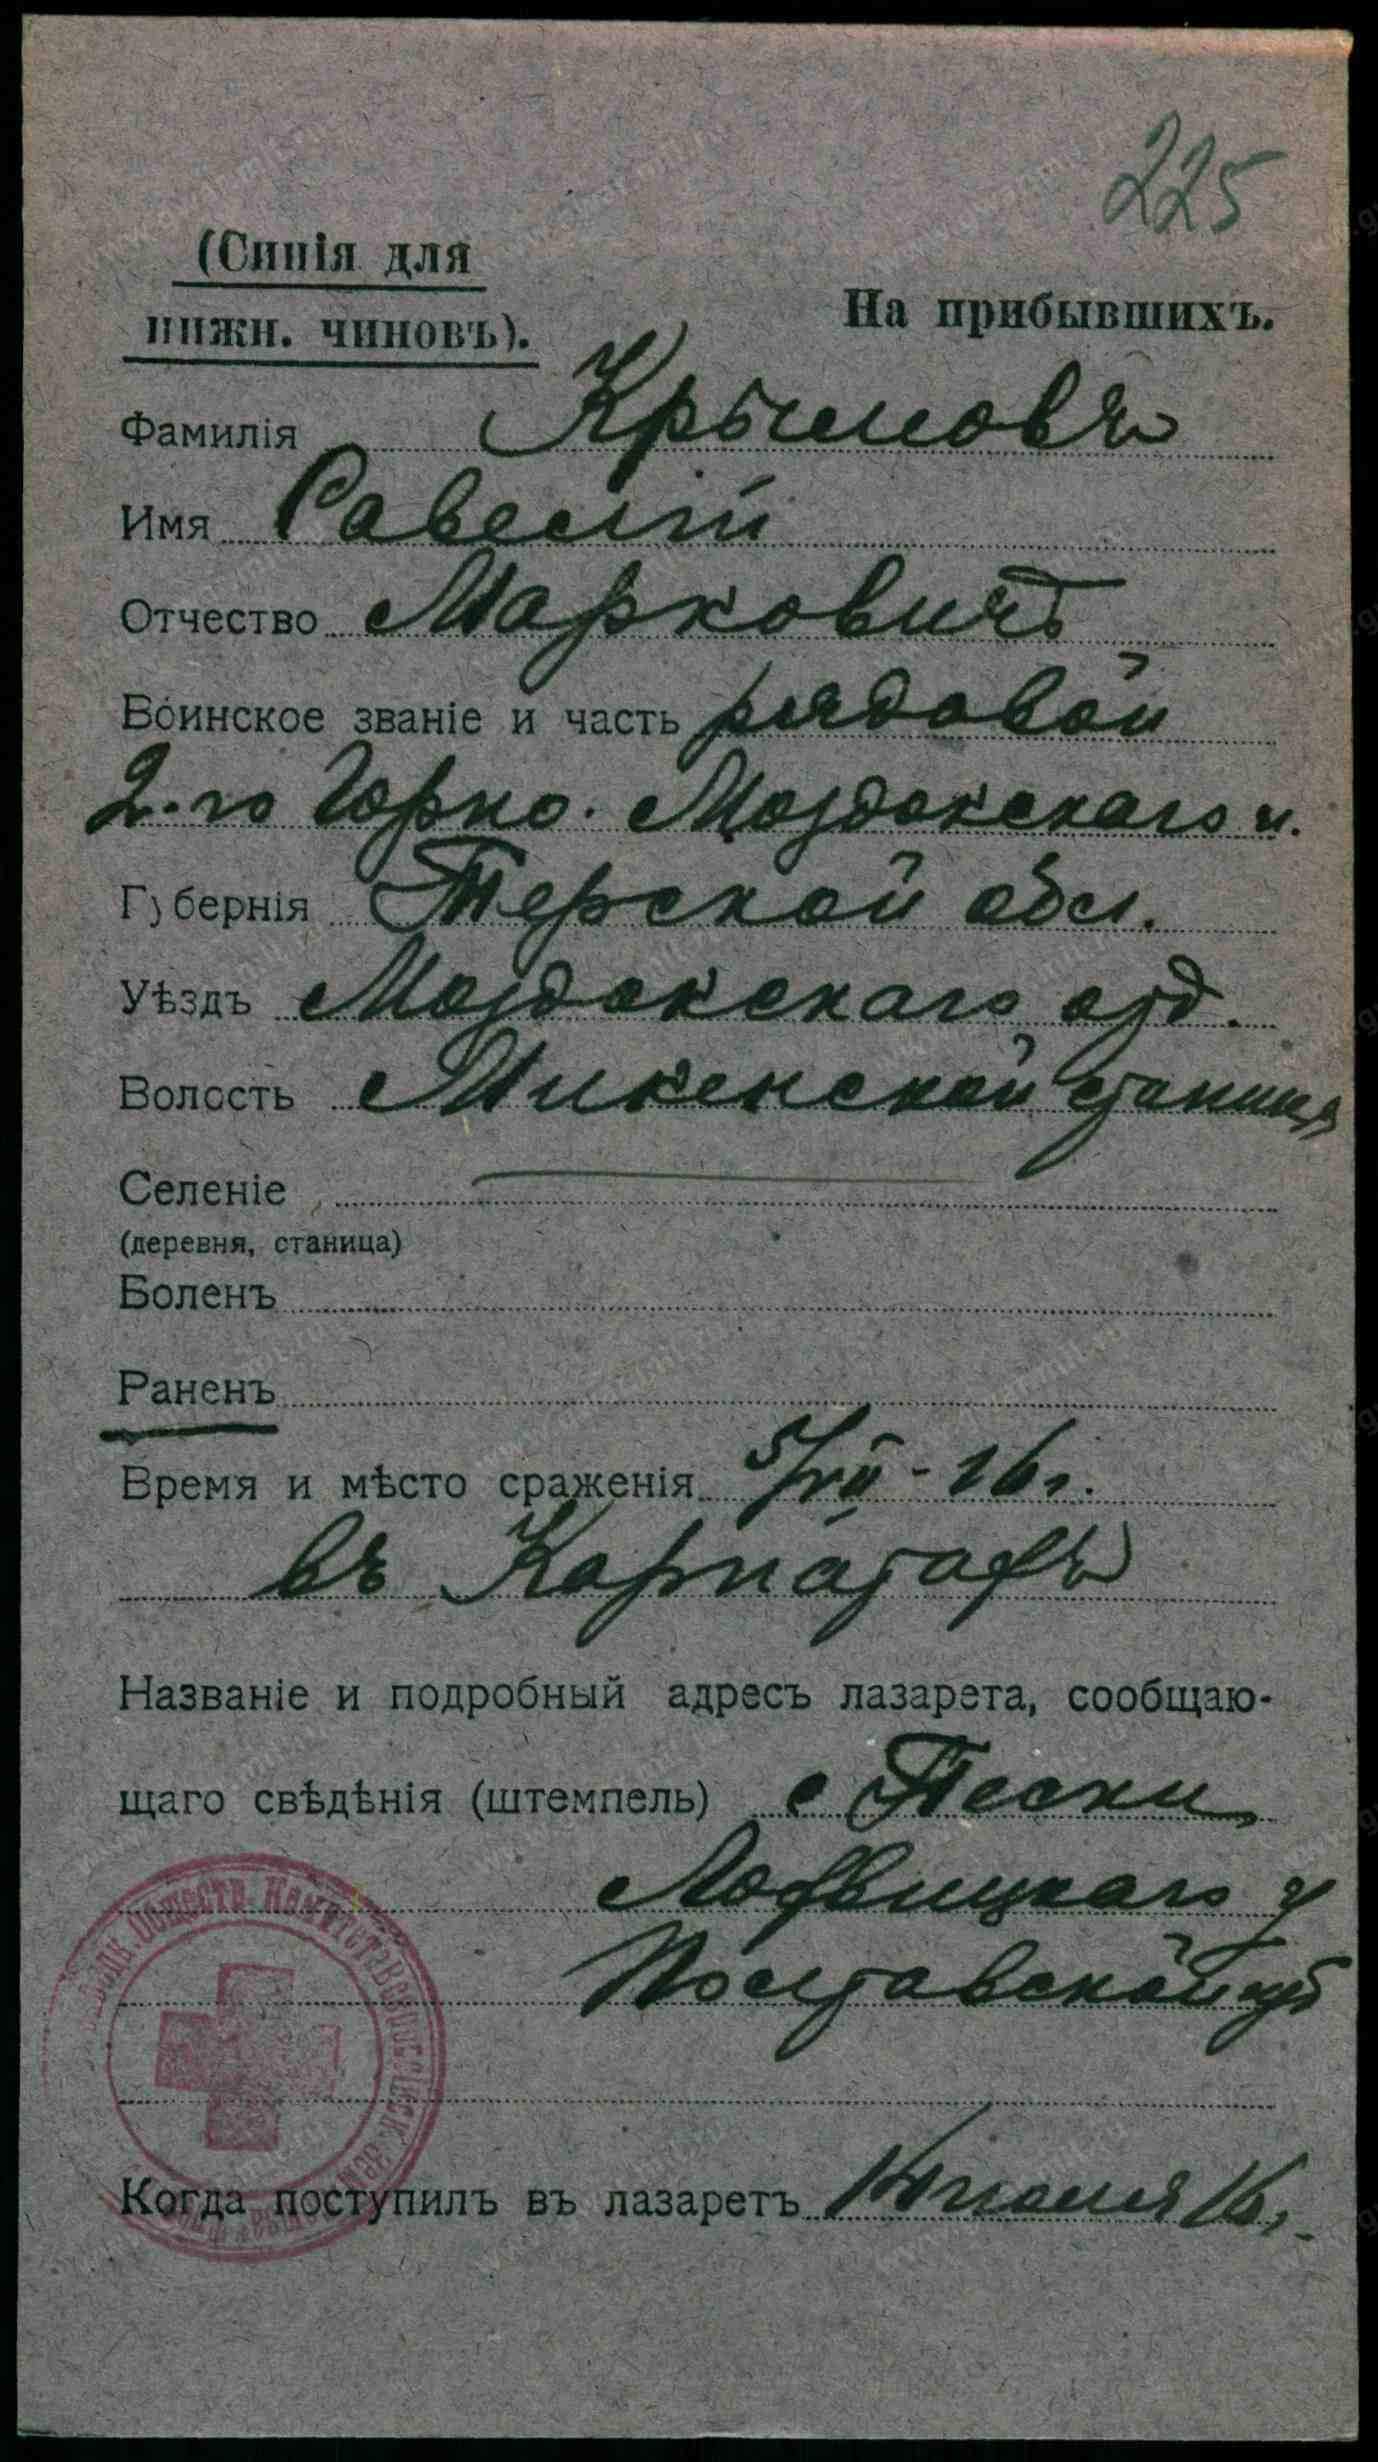 225
(Синія для
нижн. чиновъ).
На прибывшихъ.
Фамилія Крымовъ
Имя Савелій
Отчество Марковичъ
Воинское званіе и часть рядовой
2-го Горно. Моздокскаго п.
Губернія Терской обл.
Уѣздъ Моздокскаго отд.
Волость Микенской станицы
Селеніе
(деревня, станица)
Боленъ
Раненъ
Время и мѣсто сраженія 5/VII - 16 г.
въ Карпатахъ
Названіе и подробный адресъ лазарета, сообщаю-
щаго свѣдѣнія (штемпель) с Пески
Лохвицкаго у
Полтавской губ
Когда поступилъ въ лазаретъ июля 16 г.